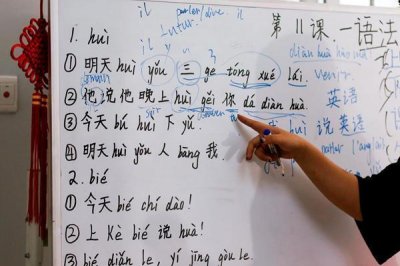 il parler/dire il
futur
第 11 课 - 语法
1. huì
① 明天 huì yǒu 三 ge tóng xué lái.
demain
② 他说他晚上 huì gěi 你 dǎ diàn huà.
soir
③ 今天 bú huì 下 yǔ.
④ 明天 huì yǒu 人 bāng 我.
2. bié
① 今天 bié chí dào!
② 上 kè bié 说 huà!
③ bié diǎn le, yǐ jīng gòu le.
venir
英语
说英语
parler l'anglais